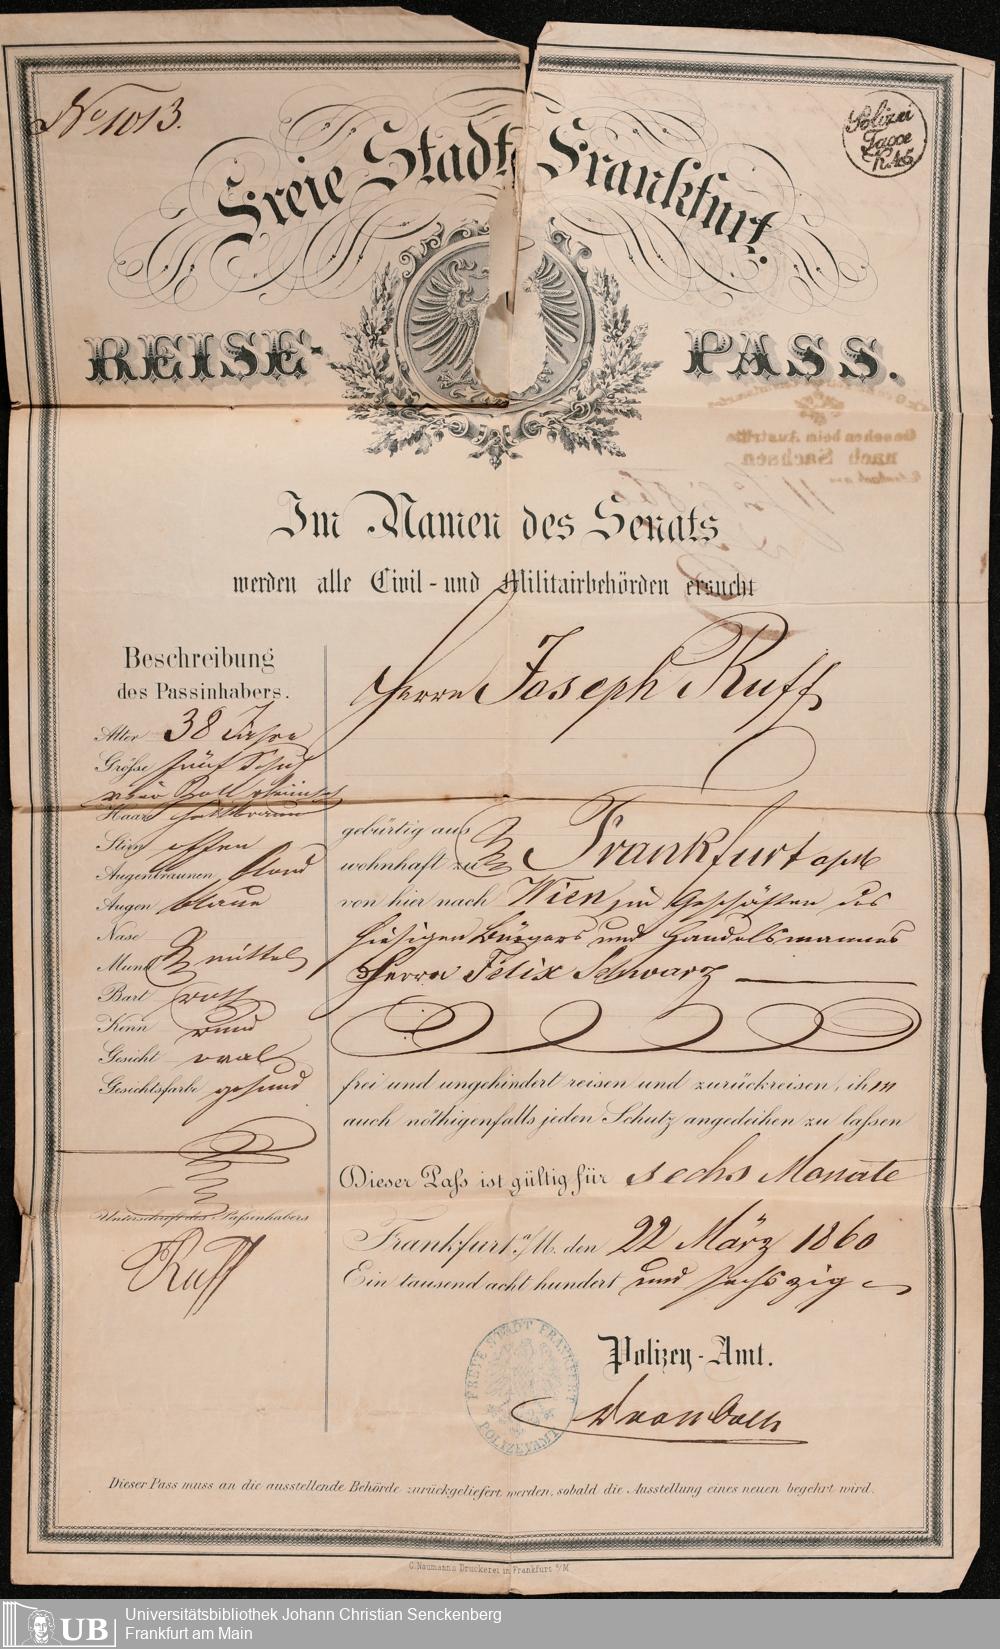 No 1013.
Polizei
Taxe
K. 45
Freie Stadt Frankfurt.
REISE-PASS.
Im Namen des Senats
werden alle Civil- und Militairbehörden ersucht
Beschreibung
des Passinhabers.
Alter 38 Jahre
Grösse fünf Schuh
vier Zoll
Haare hellbraun
Stirn offen
Augenbraunen blond
Augen blaue
Nase
Mund mittel
Bart roth
Kinn rund
Gesicht oval
Gesichtsfarbe gesund
Unterschrift des Passinhabers
Ruff
Herrn Joseph Ruff
gebürtig aus
wohnhaft zu Frankfurt a/M
von hier nach Wien, in Geschäften des
hiesigen Bürgers und Handelsmannes
Herrn Felix Schwarz
frei und ungehindert reisen und zurückreisen, ihm
auch nöthigenfalls jeden Schutz angedeihen zu lassen
Dieser Pass ist gültig für sechs Monate
Frankfurt a/M. den 22 März 1860
Ein tausend acht hundert und sechszig
FREYE STADT FRANKFURT
POLIZEYAMT
Polizey-Amt.
Dieser Pass muss an die ausstellende Behörde zurückgeliefert werden, sobald die Ausstellung eines neuen begehrt wird.
C. Naumann's Druckerei in Frankfurt a/M
Gesehen beim Austritte
nach Sachsen
UB
Universitätsbibliothek Johann Christian Senckenberg
Frankfurt am Main